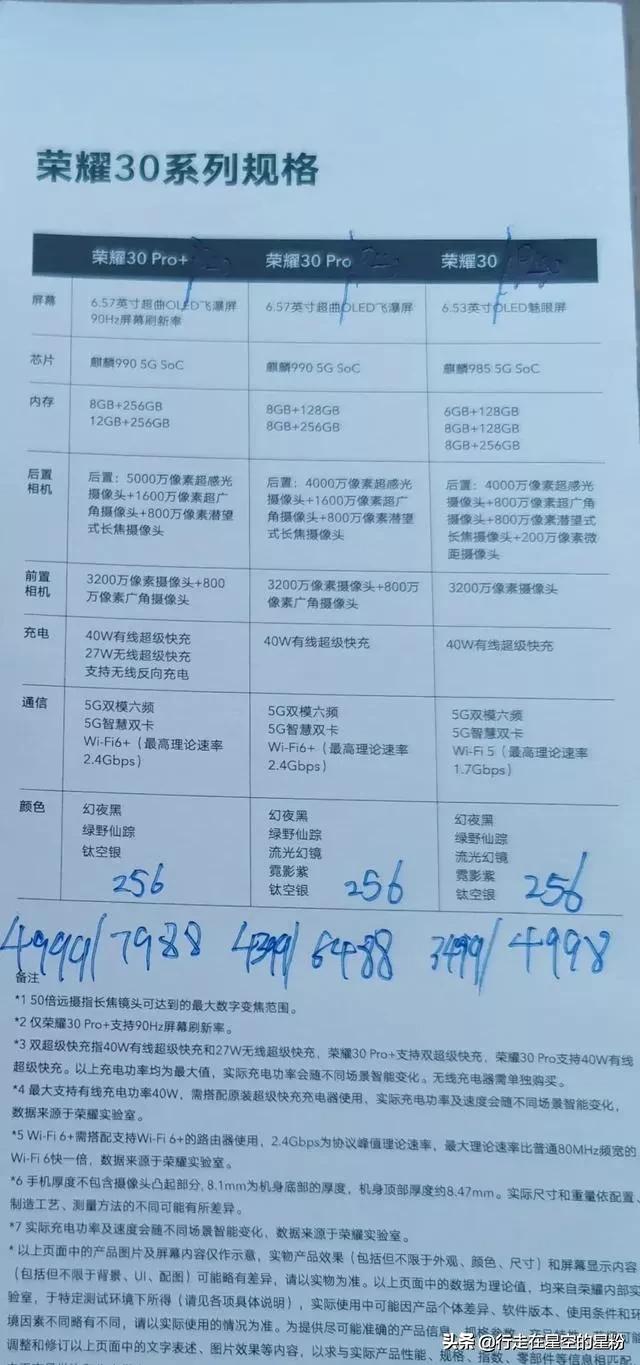 荣耀30系列规格
荣耀30 Pro+
荣耀30 Pro
荣耀30
屏幕
6.57英寸超曲OLED飞瀑屏
90Hz屏幕刷新率
6.57英寸超曲OLED飞瀑屏
6.53英寸OLED魅眼屏
芯片
麒麟990 5G SoC
麒麟990 5G SoC
麒麟985 5G SoC
内存
8GB+256GB
12GB+256GB
8GB+128GB
8GB+256GB
6GB+128GB
8GB+128GB
8GB+256GB
后置
相机
后置：5000万像素超感光
摄像头+1600万像素超广
角摄像头+800万像素潜望
式长焦摄像头
后置：4000万像素超感光
摄像头+1600万像素超广
角摄像头+800万像素潜望
式长焦摄像头
后置：4000万像素超感光
摄像头+800万像素超广角
摄像头+800万像素潜望式
长焦摄像头+200万像素微
距摄像头
前置
相机
3200万像素摄像头+800
万像素广角摄像头
3200万像素摄像头+800万
像素广角摄像头
3200万像素摄像头
充电
40W有线超级快充
27W无线超级快充
支持无线反向充电
40W有线超级快充
40W有线超级快充
通信
5G双模六频
5G智慧双卡
Wi-Fi6+（最高理论速率
2.4Gbps）
5G双模六频
5G智慧双卡
Wi-Fi6+（最高理论速率
2.4Gbps）
5G双模六频
5G智慧双卡
Wi-Fi 5（最高理论速率
1.7Gbps）
颜色
幻夜黑
绿野仙踪
钛空银
256
幻夜黑
绿野仙踪
流光幻镜
霓影紫
钛空银
256
幻夜黑
绿野仙踪
流光幻镜
霓影紫
钛空银
256
4999/7988
4399/6488
3499/4998
备注
*1 50倍远摄指长焦镜头可达到的最大数字变焦范围。
*2 仅荣耀30 Pro+支持90Hz屏幕刷新率。
*3 双超级快充指40W有线超级快充和27W无线超级快充，荣耀30 Pro+支持双超级快充，荣耀30 Pro支持40W有线
超级快充。以上充电功率均为最大值，实际充电功率会随不同场景智能变化。无线充电器需单独购买。
*4 最大支持有线充电功率40W，需搭配原装超级快充充电器使用，实际充电功率及速度会随不同场景智能变化，
数据来源于荣耀实验室。
*5 Wi-Fi 6+需搭配支持Wi-Fi 6+的路由器使用，2.4Gbps为协议峰值理论速率，最大理论速率比普通80MHz频宽的
Wi-Fi 6快一倍，数据来源于荣耀实验室。
*6 手机厚度不包含摄像头凸起部分，8.1mm为机身底部的厚度，机身顶部厚度约8.47mm。实际尺寸和重量依配置、
制造工艺、测量方法的不同可能有所差异。
*7 实际充电功率及速度会随不同场景智能变化，数据来源于荣耀实验室。
* 以上页面中的产品图片及屏幕内容仅作示意，实物产品效果（包括但不限于外观、颜色、尺寸）和屏幕显示内容
（包括但不限于背景、UI、配图）可能略有差异，请以实物为准。以上页面中的数据为理论值，均来自荣耀内部实
验室，于特定测试环境下所得（请见各项具体说明），实际使用中可能因产品个体差异、软件版本、使用条件和环
境因素不同略有不同，请以实际使用的情况为准。为提供尽可能准确的产品信息、规格参数、
调整和修订以上页面中的文字表述、图片效果等内容，以求与实际产品性能、规格、指数、零部件等信息相匹配
头条 @行走在星空的星粉